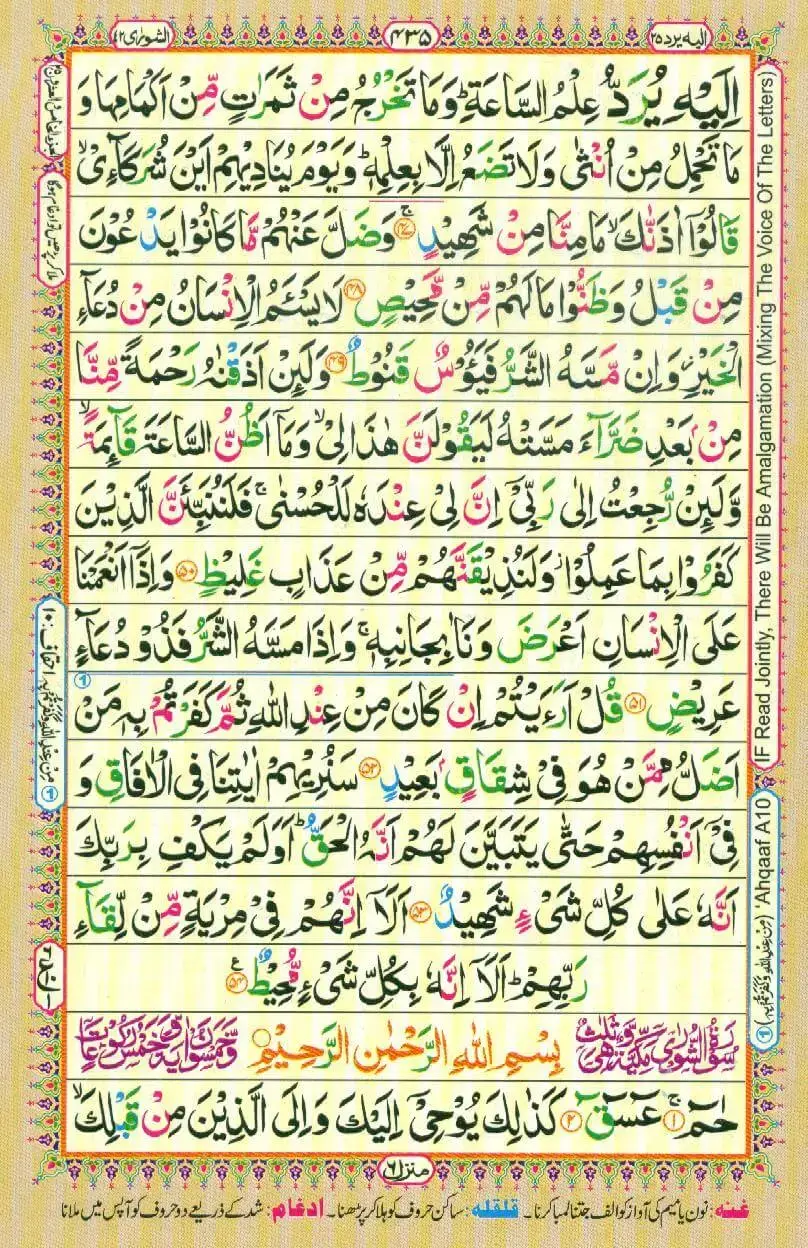 اليه يرد ٢٥
٤٣٥
الشورٰى ٤٢
اِلَيْهِ يُرَدُّ عِلْمُ السَّاعَةِ ؕ وَمَا تَخْرُجُ مِنْ ثَمَرٰتٍ مِّنْ اَكْمَامِهَا وَ
مَا تَحْمِلُ مِنْ اُنْثٰى وَلَا تَضَعُ اِلَّا بِعِلْمِهٖ ؕ وَيَوْمَ يُنَادِيْهِمْ اَيْنَ شُرَكَآءِیْ ۙ
قَالُوْۤا اٰذَنّٰكَ ۙ مَا مِنَّا مِنْ شَهِيْدٍ ۚ ﴿٤٧﴾ وَضَلَّ عَنْهُمْ مَّا كَانُوْا يَدْعُوْنَ
مِنْ قَبْلُ وَظَنُّوْا مَا لَهُمْ مِّنْ مَّحِيْصٍ ﴿٤٨﴾ لَا يَسْـَٔمُ الْاِنْسَانُ مِنْ دُعَآءِ
الْخَيْرِ ؗ وَاِنْ مَّسَّهُ الشَّرُّ فَيَـُٔوْسٌ قَنُوْطٌ ﴿٤٩﴾ وَلَئِنْ اَذَقْنٰهُ رَحْمَةً مِّنَّا
مِنْۢ بَعْدِ ضَرَّآءَ مَسَّتْهُ لَيَقُوْلَنَّ هٰذَا لِیْ ۙ وَمَاۤ اَظُنُّ السَّاعَةَ قَآئِمَةً ۙ
وَّلَئِنْ رُّجِعْتُ اِلٰى رَبِّیْۤ اِنَّ لِیْ عِنْدَهٗ لَلْحُسْنٰى ۚ فَلَنُنَبِّئَنَّ الَّذِيْنَ
كَفَرُوْا بِمَا عَمِلُوْا ؗ وَلَنُذِيْقَنَّهُمْ مِّنْ عَذَابٍ غَلِيْظٍ ﴿٥٠﴾ وَاِذَاۤ اَنْعَمْنَا
عَلَى الْاِنْسَانِ اَعْرَضَ وَنَاٰ بِجَانِبِهٖ ۚ وَاِذَا مَسَّهُ الشَّرُّ فَذُوْ دُعَآءٍ
عَرِيْضٍ ﴿٥١﴾ قُلْ اَرَءَيْتُمْ اِنْ كَانَ مِنْ عِنْدِ اللّٰهِ ثُمَّ كَفَرْتُمْ بِهٖ مَنْ
اَضَلُّ مِمَّنْ هُوَ فِیْ شِقَاقٍۭ بَعِيْدٍ ﴿٥٢﴾ سَنُرِيْهِمْ اٰيٰتِنَا فِی الْاٰفَاقِ وَ
فِیْۤ اَنْفُسِهِمْ حَتّٰى يَتَبَيَّنَ لَهُمْ اَنَّهُ الْحَقُّ ؕ اَوَلَمْ يَكْفِ بِرَبِّكَ
اَنَّهٗ عَلٰى كُلِّ شَیْءٍ شَهِيْدٌ ﴿٥٣﴾ اَلَاۤ اِنَّهُمْ فِیْ مِرْيَةٍ مِّنْ لِّقَآءِ
رَبِّهِمْ ؕ اَلَاۤ اِنَّهٗ بِكُلِّ شَیْءٍ مُّحِيْطٌ ﴿٥٤﴾
سُوْرَةُ الشُّوْرٰى مَكِّيَّةٌ وَّهِىَ ثَلٰثٌ بِسْمِ اللّٰهِ الرَّحْمٰنِ الرَّحِيْمِ وَّخَمْسُوْنَ اٰيَةً وَّخَمْسُ رُكُوْعَاتٍ
حٰمٓ ۚ ﴿١﴾ عٓسٓقٓ ﴿٢﴾ كَذٰلِكَ يُوْحِیْۤ اِلَيْكَ وَاِلَى الَّذِيْنَ مِنْ قَبْلِكَ ۙ
منزل ٦
غنه: نون یا میم کی آواز کو الف جتنا لمبا کرنا۔ قلقله: ساکن حروف کو ہلا کر پڑھنا۔ ادغام: شد کے ذریعے دو حروف کو آپس میں ملانا
IF Read Jointly, There Will Be Amalgamation (Mixing The Voice Of The Letters)
(مِنْ عِنْدِ اللّٰهِ وَكَفَرْتُمْ بِهٖ) 'Ahqaaf A10
ملا کر پڑھیں تو ادغام ہوگا
مِنْ عِنْدِ اللّٰهِ وَكَفَرْتُمْ بِهٖ احقاف: ١٠